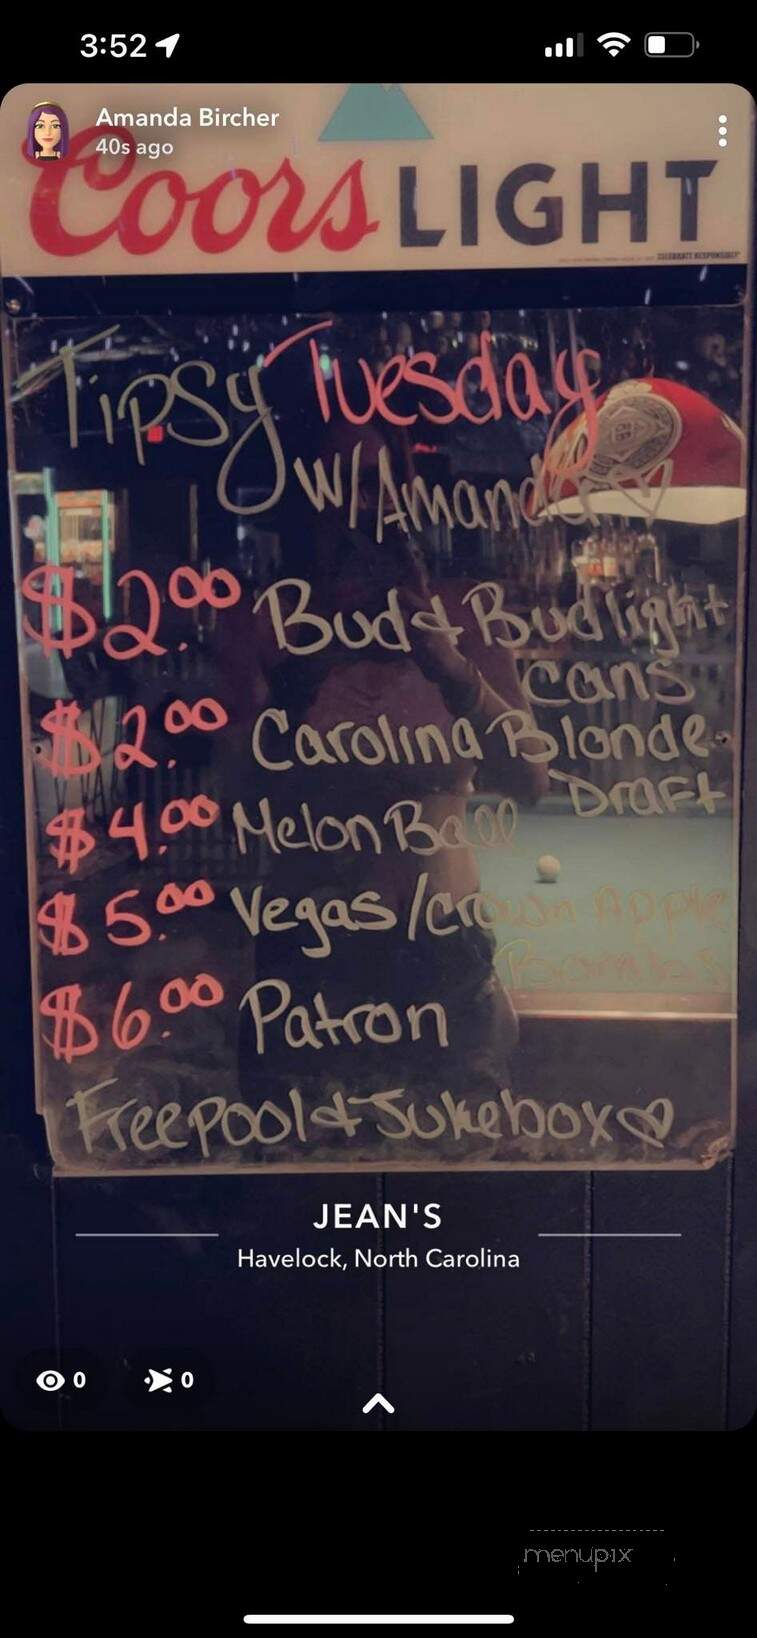 3:52
Amanda Bircher
40s ago
Coors LIGHT
CELEBRATE RESPONSIBLY
Tipsy Tuesday
w/Amanda
$2.00 Bud & Bud light
cans
$2.00 Carolina Blonde
Draft
$4.00 Melon Ball
$5.00 Vegas/Crown Apple
Bombs
$6.00 Patron
Free pool & Jukebox
JEAN'S
Havelock, North Carolina
0 0
menupix